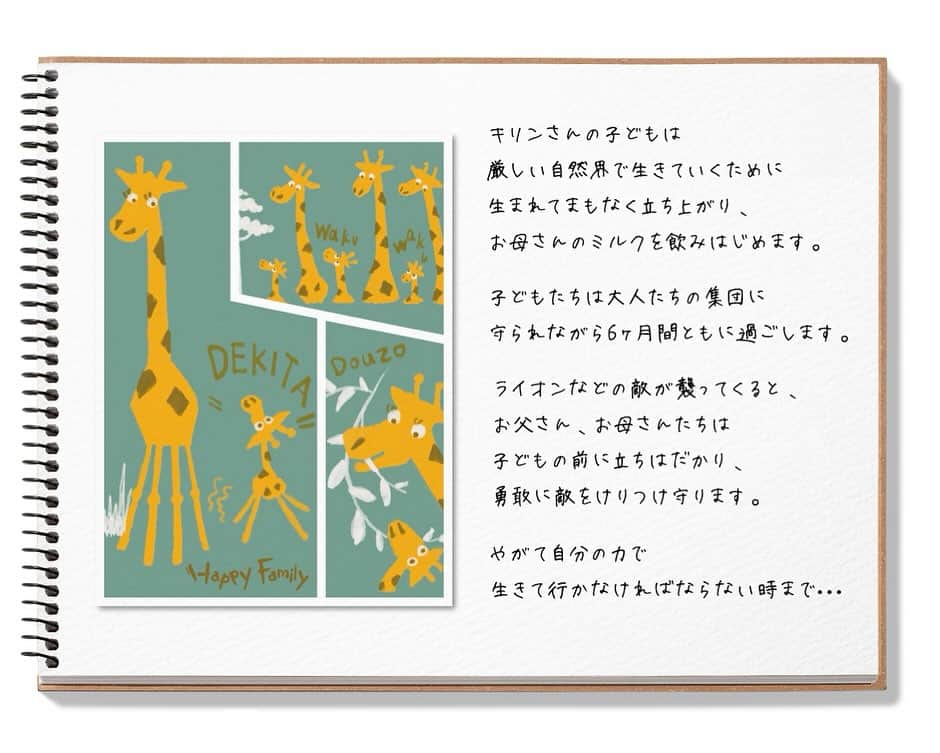 waku
wak
DEKITA
Douzo
Happy Family
キリンさんの子どもは
厳しい自然界で生きていくために
生まれてまもなく立ち上がり、
お母さんのミルクを飲みはじめます。
子どもたちは大人たちの集団に
守られながら6ヶ月間ともに過ごします。
ライオンなどの敵が襲ってくると、
お父さん、お母さんたちは
子どもの前に立ちはだかり、
勇敢に敵をけりつけ守ります。
やがて自分の力で
生きて行かなければならない時まで・・・